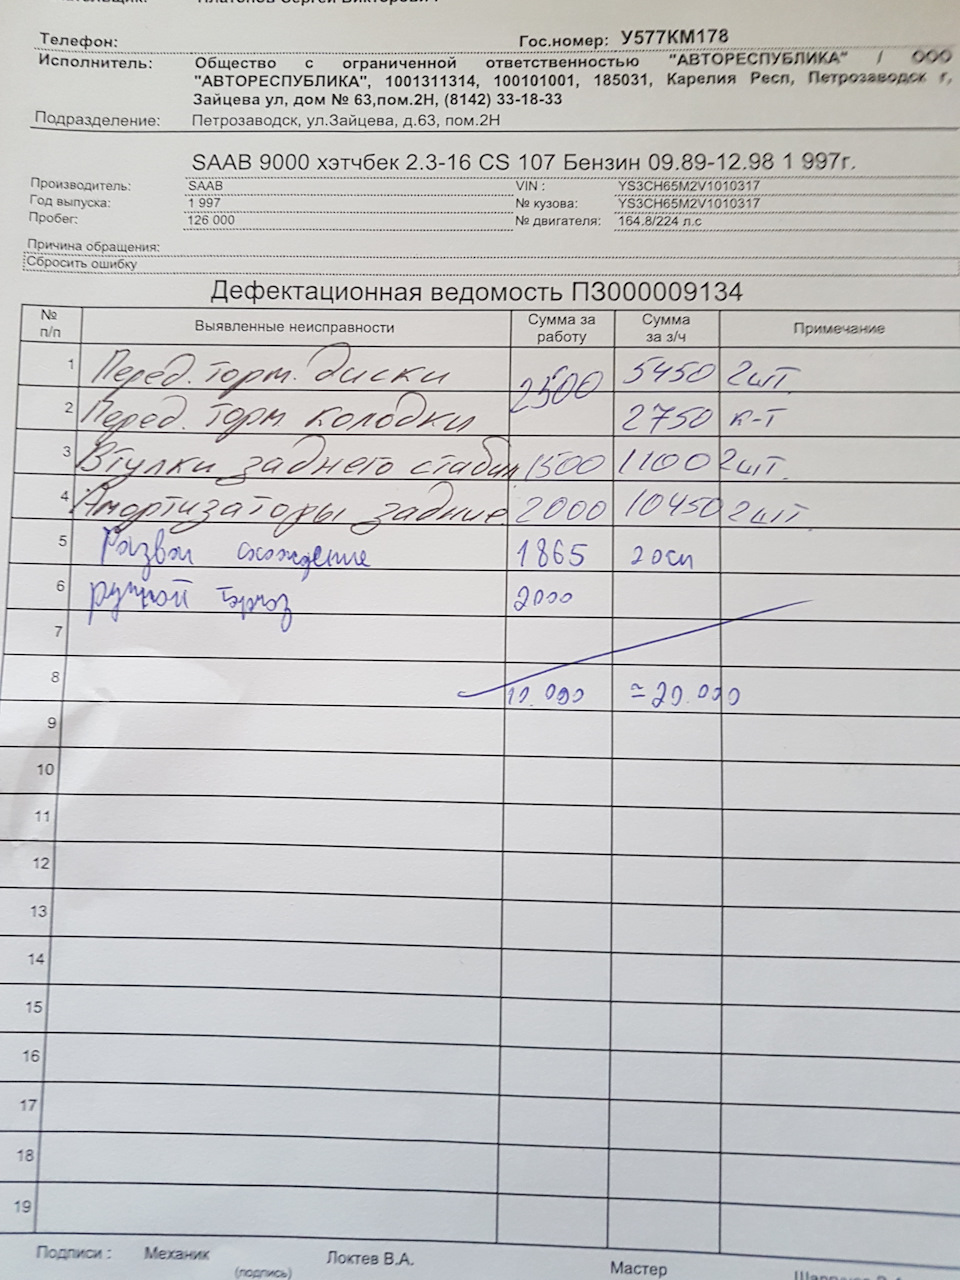 Платонов Сергей Викторович
Телефон: Гос.номер: У577КМ178
Исполнитель: Общество с ограниченной ответственностью "АВТОРЕСПУБЛИКА" / ООО
"АВТОРЕСПУБЛИКА", 1001311314, 100101001, 185031, Карелия Респ, Петрозаводск г,
Зайцева ул, дом № 63,пом.2Н, (8142) 33-18-33
Подразделение: Петрозаводск, ул.Зайцева, д.63, пом.2Н
SAAB 9000 хэтчбек 2.3-16 CS 107 Бензин 09.89-12.98 1 997г.
Производитель: SAAB VIN : YS3CH65M2V1010317
Год выпуска: 1 997 № кузова: YS3CH65M2V1010317
Пробег: 126 000 № двигателя: 164.8/224 л.с
Причина обращения:
Сбросить ошибку
Дефектационная ведомость ПЗ000009134
№ п/п Выявленные неисправности Сумма за работу Сумма за з/ч Примечание
1 Перед. торм. диски 2500 5450 2шт.
2 Перед. торм колодки 2750 к-т
3 Втулки заднего стабил 1500 1100 2шт.
4 Амортизаторы задние 2000 10450 2шт.
5 Развал схождение 1865 2 оси
6 ручной тормоз 2000
7
8 10.000 ≃20.000
9
10
11
12
13
14
15
16
17
18
19
Подписи : Механик Локтев В.А. Мастер
(подпись)